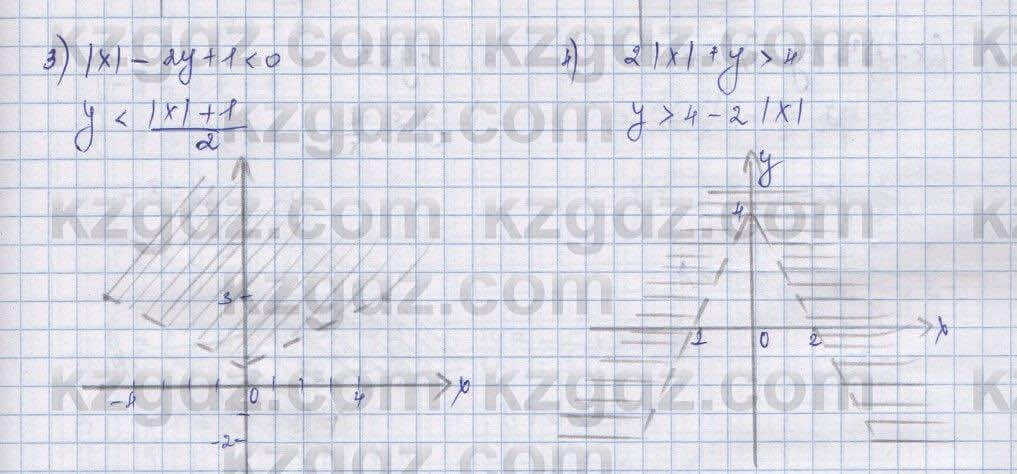 3) |x| - 2y + 1 < 0
y < |x| + 1 / 2
3
-4 0 4 x
-2
4) 2|x| + y > 4
y > 4 - 2|x|
y
4
1 0 2 x
kzgdz.com kzgdz.com
kzgdz.com
kzgdz.com kzgdz.com
kzgdz.com
kzgdz.com kzgdz.com